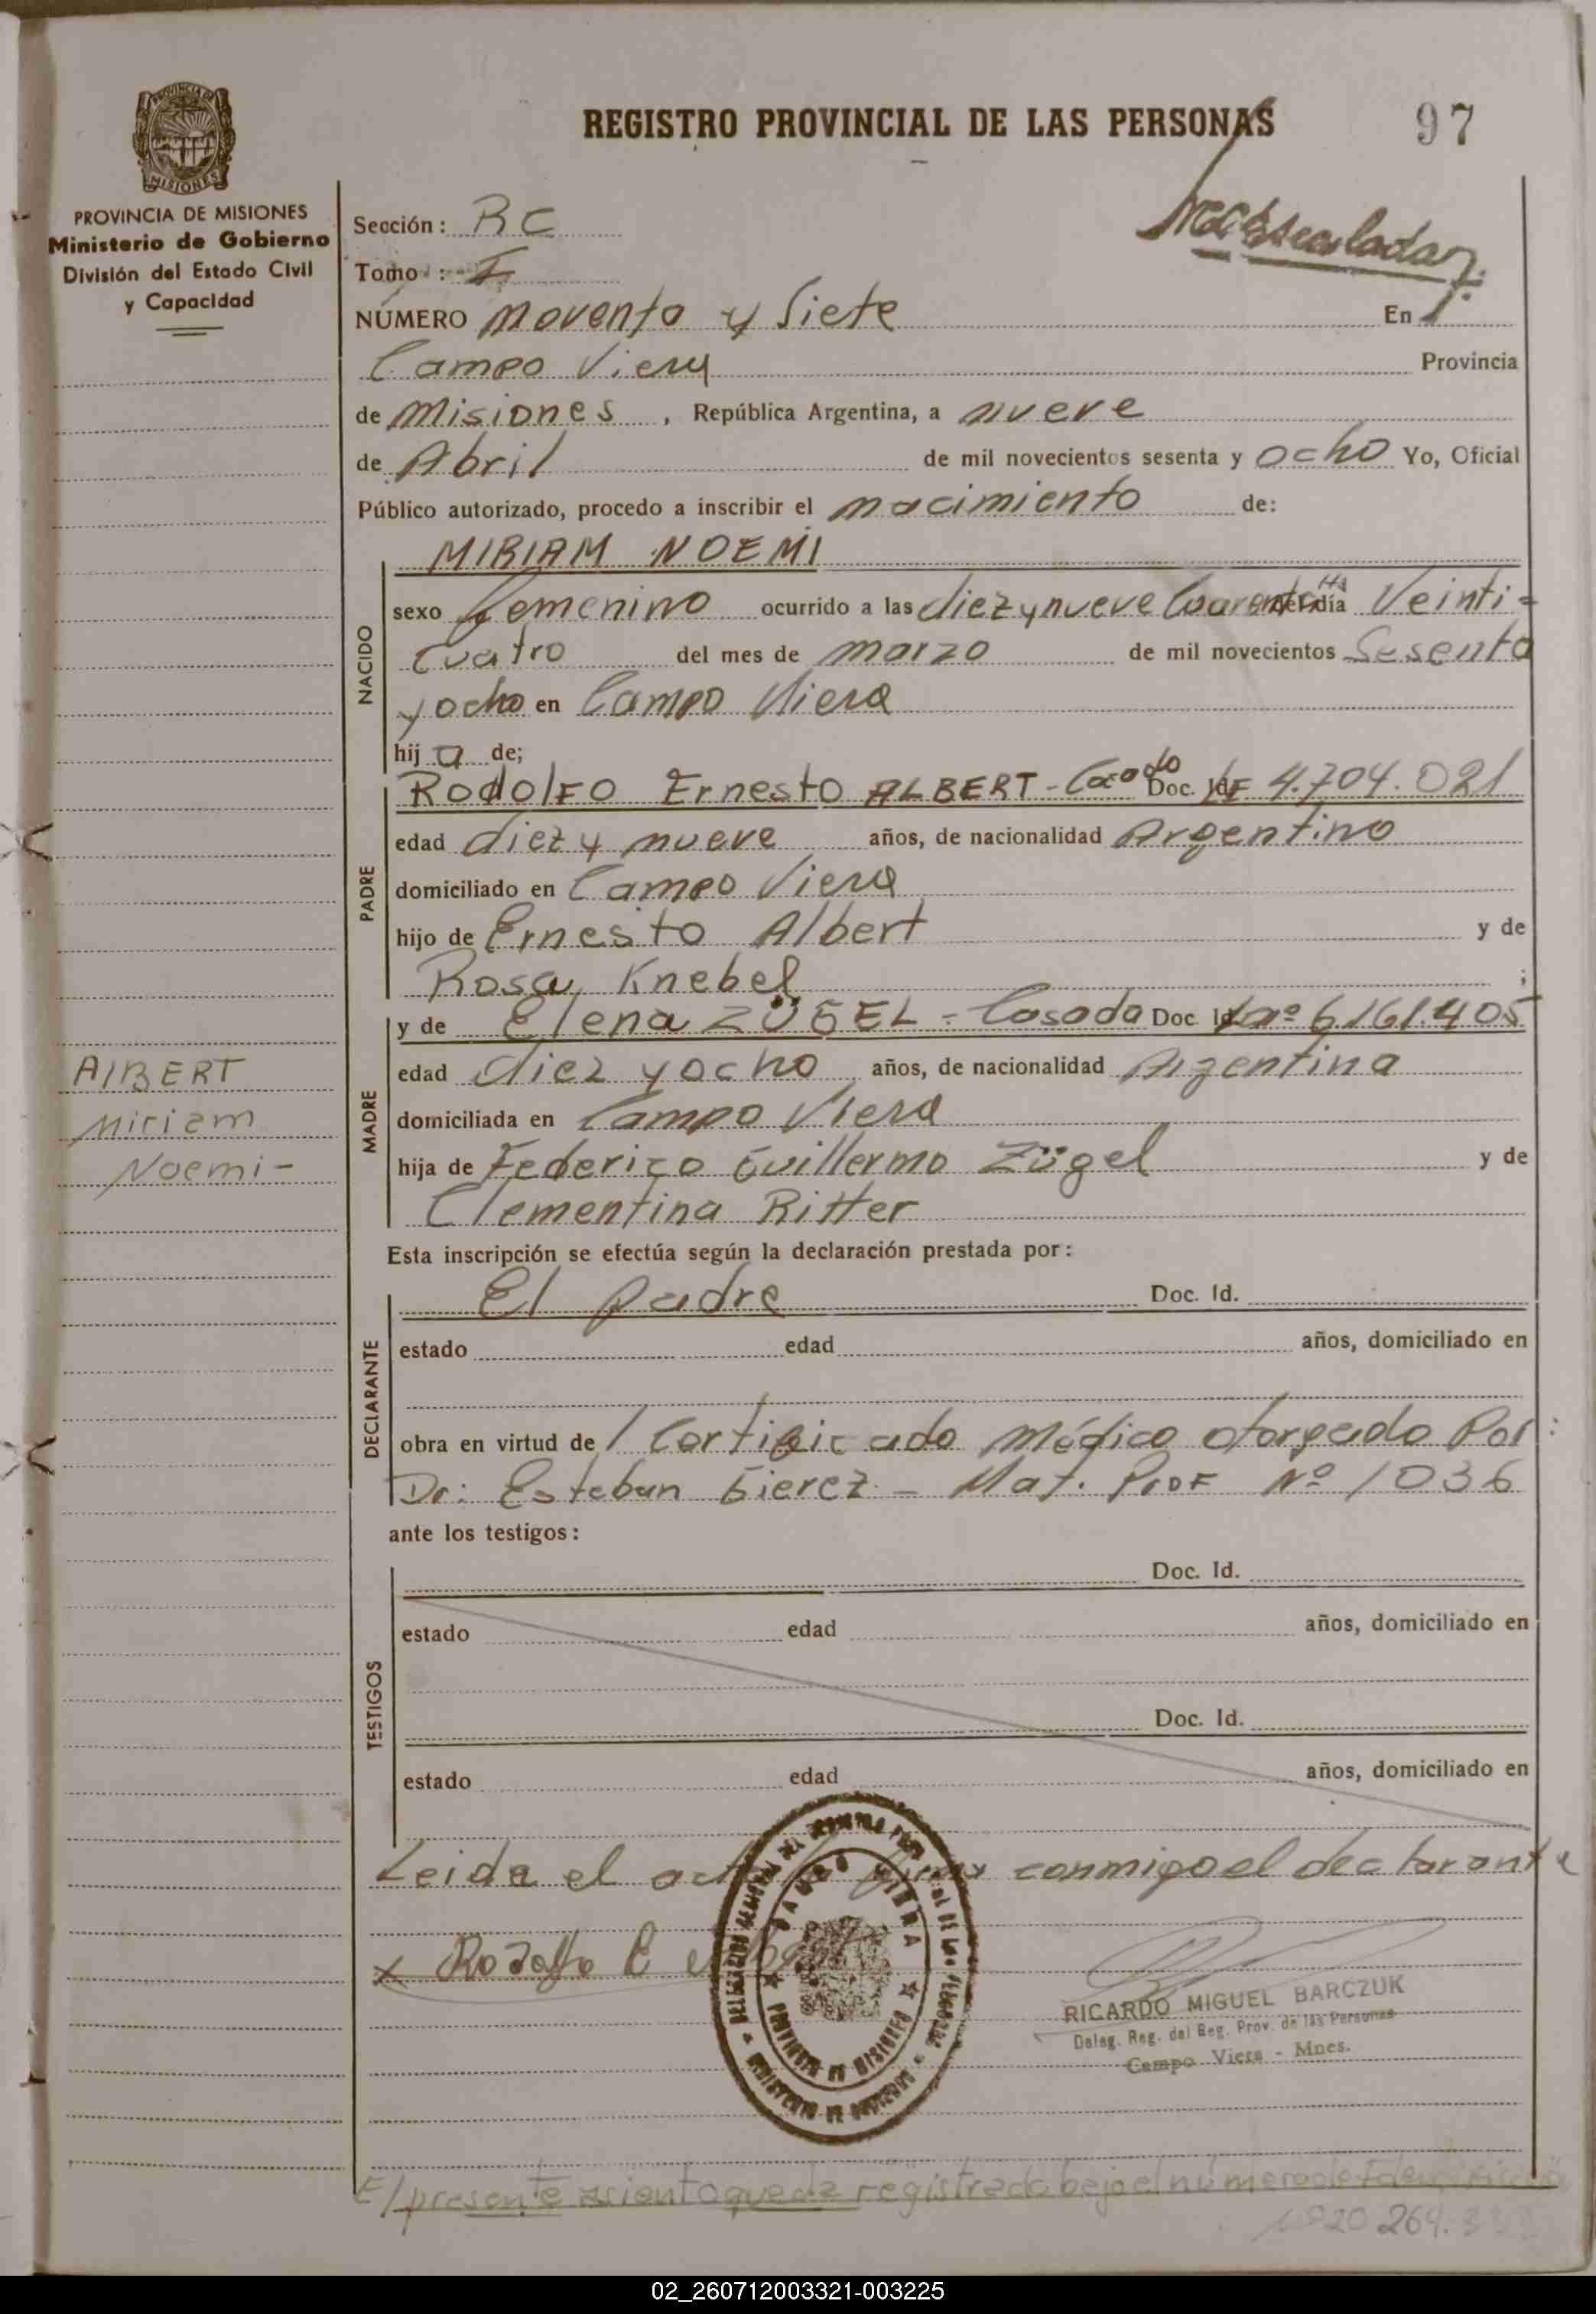 REGISTRO PROVINCIAL DE LAS PERSONAS
97
PROVINCIA DE MISIONES
MISIONES
PROVINCIA DE MISIONES
Ministerio de Gobierno
División del Estado Civil
y Capacidad
Sección: RC
Tomo: I
NÚMERO noventa y Siete En
Campo Viera Provincia
de Misiones, República Argentina, a nueve
de Abril de mil novecientos sesenta y ocho Yo, Oficial
Público autorizado, procedo a inscribir el nacimiento de:
MIRIAM NOEMI
NACIDO
sexo femenino ocurrido a las diez y nueve Cuarenta Hs del día Veinti-
cuatro del mes de marzo de mil novecientos Sesenta
y ocho en Campo Viera
hij a de;
PADRE
Rodolfo Ernesto ALBERT - Casado Doc. Id. 4.704.021
edad diez y nueve años, de nacionalidad Argentino
domiciliado en Campo Viera
hijo de Ernesto Albert y de
Rosa Knebel;
MADRE
y de Elena ZÜGEL - Casada Doc. Id. nº 6.161.405
edad diez y ocho años, de nacionalidad Argentina
domiciliada en Campo Viera
hija de Federico Guillermo Zügel y de
Clementina Ritter
ALBERT
Miriam
Noemi-
Esta inscripción se efectúa según la declaración prestada por:
DECLARANTE
El padre Doc. Id.
estado edad años, domiciliado en
obra en virtud de 1 Certificado Médico otorgado Por:
Dr: Esteban Gierez - Mat. Prof Nº 1036
ante los testigos:
TESTIGOS
Doc. Id.
estado edad años, domiciliado en
Doc. Id.
estado edad años, domiciliado en
Leida el acta firma conmigo el declarante
x Rodolfo E Albert
CAMPO VIERA
PROVINCIA DE MISIONES
MINISTERIO DE GOBIERNO
RICARDO MIGUEL BARCZUK
Deleg. Reg. del Reg. Prov. de las Personas
Campo Viera - Mnes.
El presente asiento queda registrado bajo el número de
Nº 20 264.
02_260712003321-003225